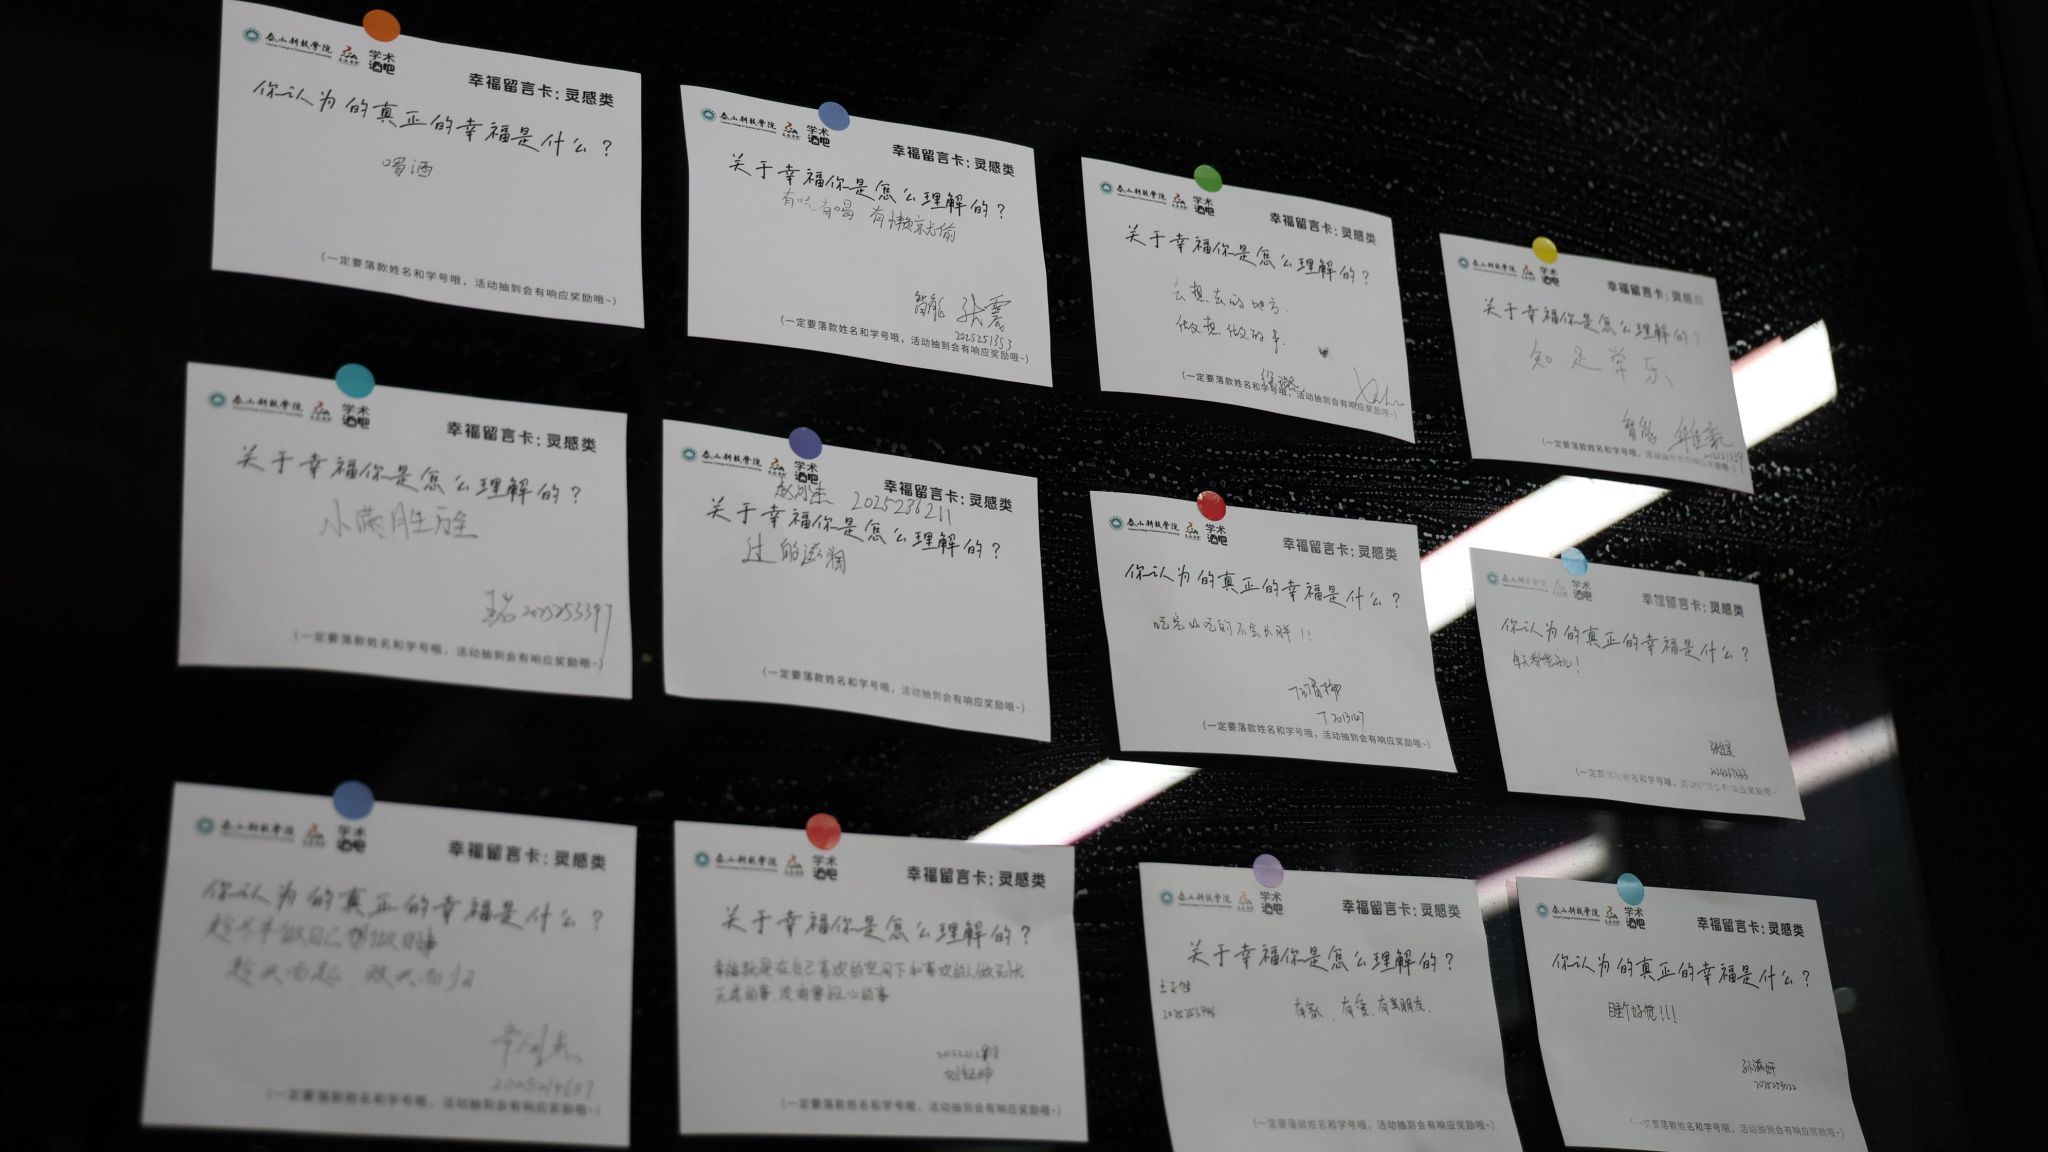 泰山科技学院
学术酒吧
幸福留言卡：灵感类
你认为的真正的幸福是什么？
喝酒
（一定要落款姓名和学号哦，活动抽到会有响应奖励哦~）
泰山科技学院
学术酒吧
幸福留言卡：灵感类
关于幸福你是怎么理解的？
有吃有喝 有懒就偷
智能 张震
2025251353
（一定要落款姓名和学号哦，活动抽到会有响应奖励哦~）
泰山科技学院
学术酒吧
幸福留言卡：灵感类
关于幸福你是怎么理解的？
去想去的地方.
做想做的事.
（一定要落款姓名和学号哦，活动抽到会有响应奖励哦~）
泰山科技学院
学术酒吧
幸福留言卡：灵感类
关于幸福你是怎么理解的？
知足常乐
智能
（一定要落款姓名和学号哦，活动抽到会有响应奖励哦~）
泰山科技学院
学术酒吧
幸福留言卡：灵感类
关于幸福你是怎么理解的？
小满胜万全
2025253397
（一定要落款姓名和学号哦，活动抽到会有响应奖励哦~）
泰山科技学院
学术酒吧
幸福留言卡：灵感类
2025236211
关于幸福你是怎么理解的？
过的滋润
（一定要落款姓名和学号哦，活动抽到会有响应奖励哦~）
泰山科技学院
学术酒吧
幸福留言卡：灵感类
你认为的真正的幸福是什么？
吃完好吃的不会长胖！！
（一定要落款姓名和学号哦，活动抽到会有响应奖励哦~）
泰山科技学院
学术酒吧
幸福留言卡：灵感类
你认为的真正的幸福是什么？
每天都能开心！
（一定要落款姓名和学号哦，活动抽到会有响应奖励哦~）
泰山科技学院
学术酒吧
幸福留言卡：灵感类
你认为的真正的幸福是什么？
趁年华做自己想做的事
趁兴而起、败兴而归
2025214657
（一定要落款姓名和学号哦，活动抽到会有响应奖励哦~）
泰山科技学院
学术酒吧
幸福留言卡：灵感类
关于幸福你是怎么理解的？
幸福就是在自己喜欢的空间下和喜欢的人做无忧
无虑的事,没有要担心的事
（一定要落款姓名和学号哦，活动抽到会有响应奖励哦~）
泰山科技学院
学术酒吧
幸福留言卡：灵感类
关于幸福你是怎么理解的？
有家、有爱、有好朋友.
（一定要落款姓名和学号哦，活动抽到会有响应奖励哦~）
泰山科技学院
学术酒吧
幸福留言卡：灵感类
你认为的真正的幸福是什么？
睡个好觉!!!
孙满妍
2025253022
（一定要落款姓名和学号哦，活动抽到会有响应奖励哦~）